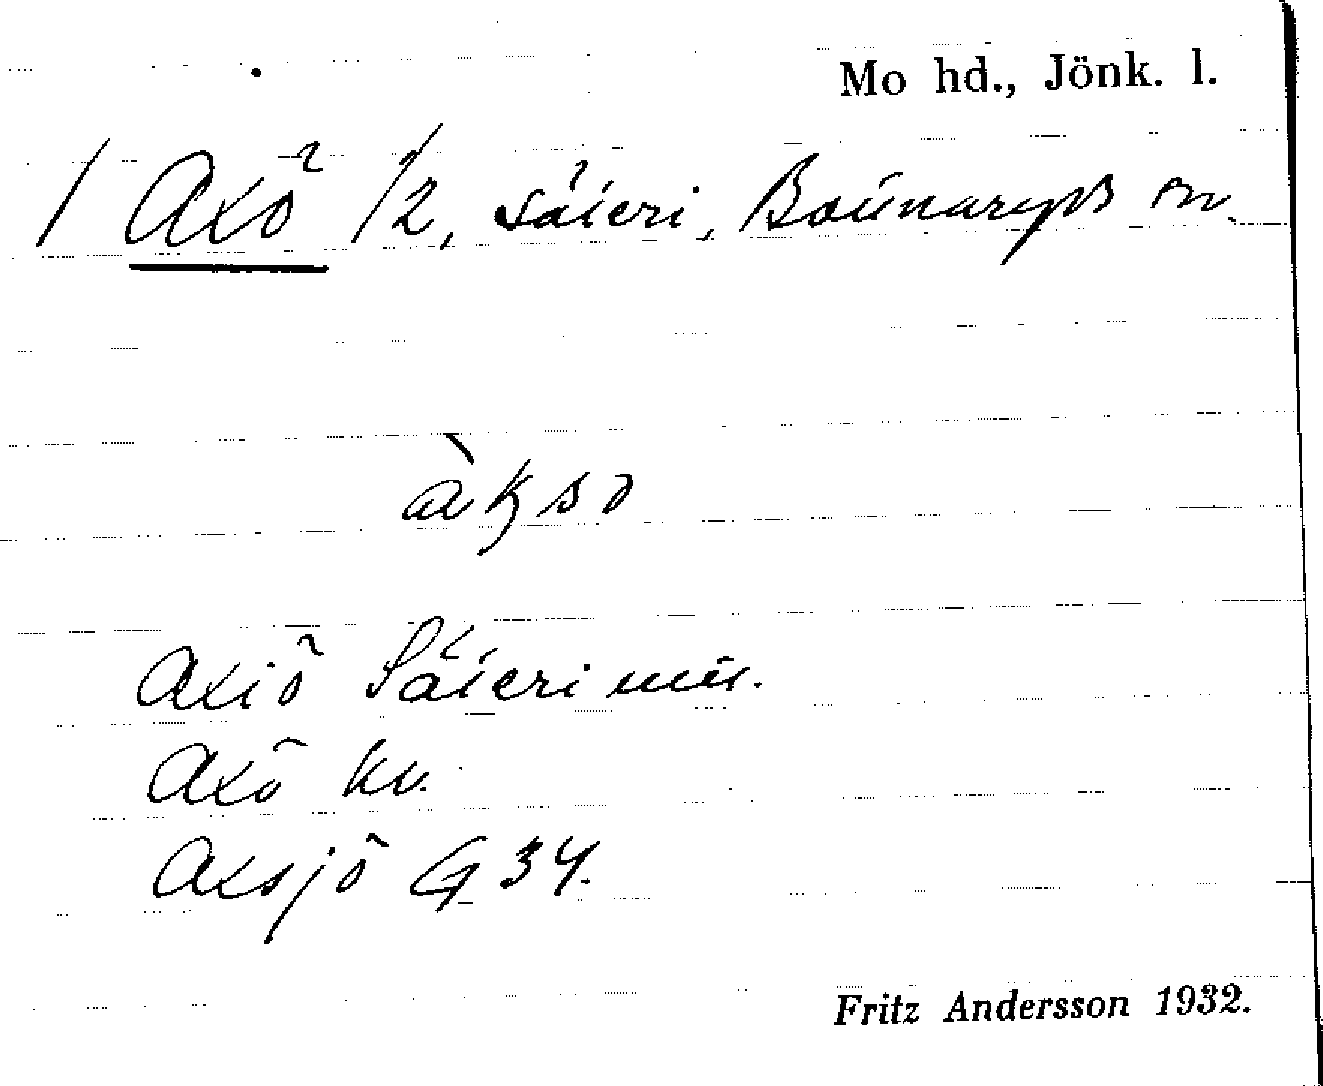 Mo hd., Jönk. l.
/ Axö /2, säteri, Bottnaryds sn
àksö
Axiö Säteri
Axö kv.
Axsjö G 34.
Fritz Andersson 1932.